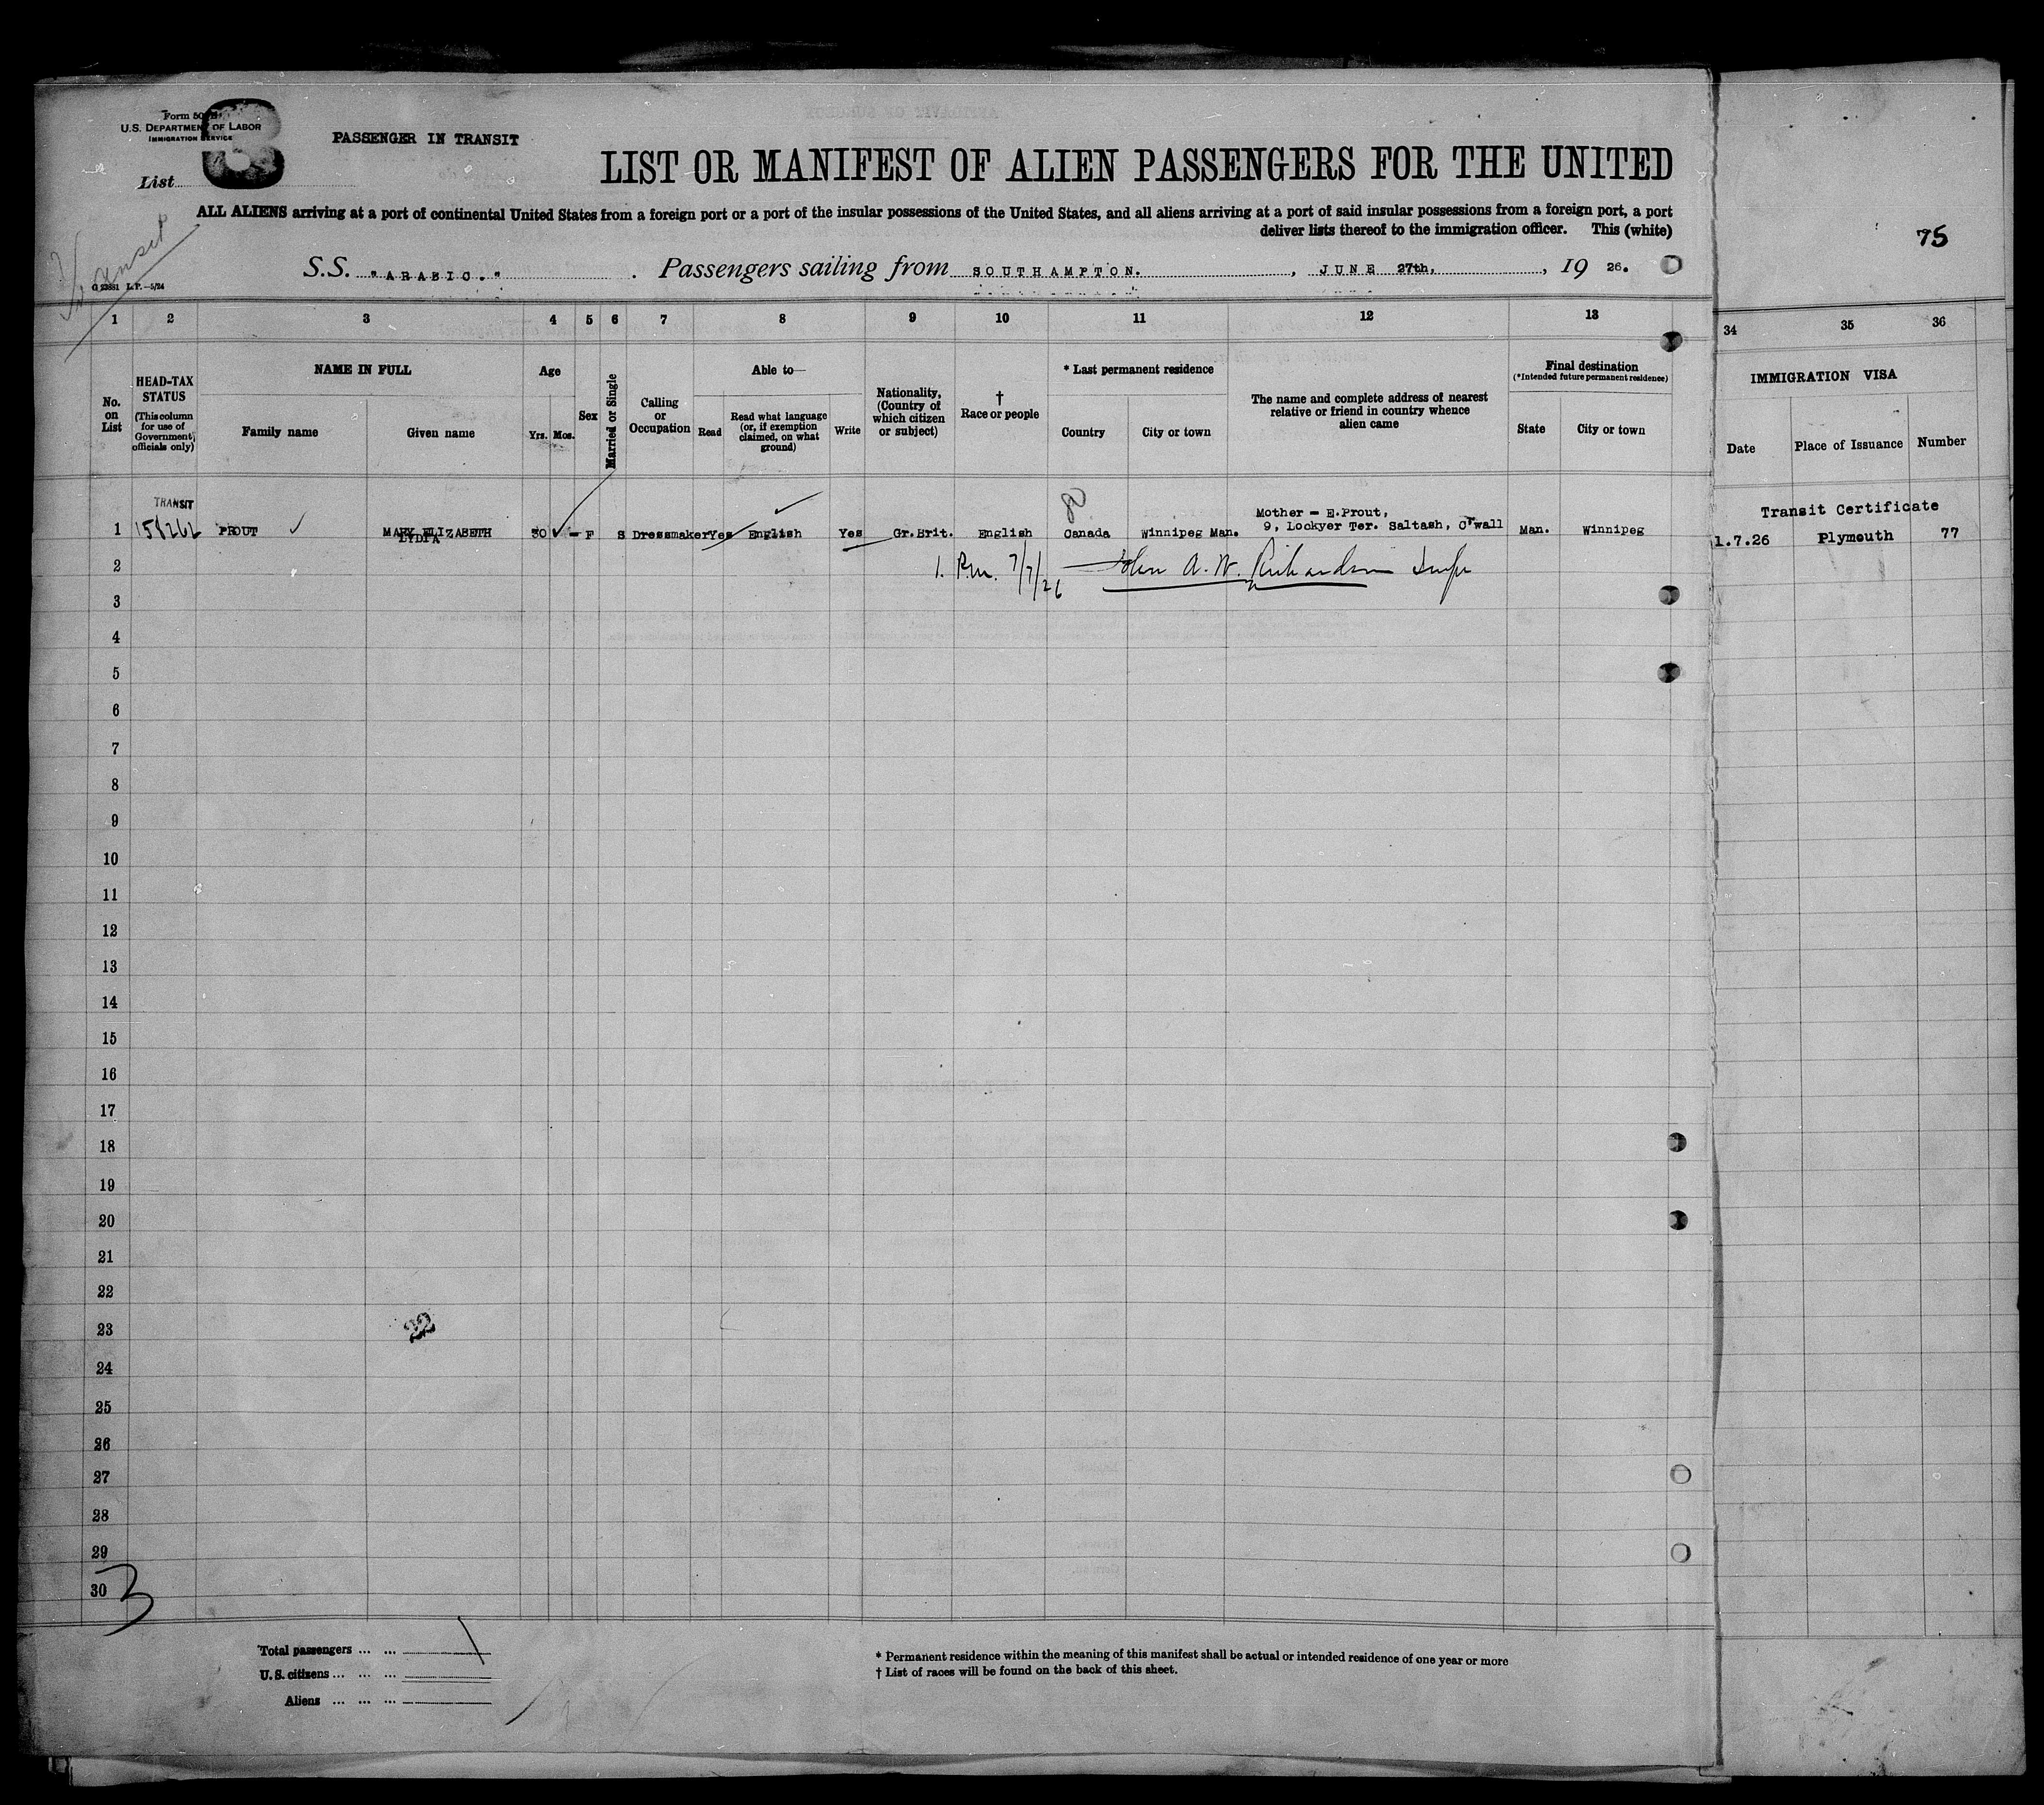 Form 500 B
U.S. DEPARTMENT OF LABOR
IMMIGRATION SERVICE
3
PASSENGER IN TRANSIT
List
LIST OR MANIFEST OF ALIEN PASSENGERS FOR THE UNITED
ALL ALIENS arriving at a port of continental United States from a foreign port or a port of the insular possessions of the United States, and all aliens arriving at a port of said insular possessions from a foreign port, a port
deliver lists thereof to the immigration officer. This (white)
75
Transit
S.S. "ARABIC." . Passengers sailing from SOUTHAMPTON. , JUNE 27th, , 19 26.
G 23881 L.P.—5/24
1 2 3 4 5 6 7 8 9 10 11 12 13 34 35 36
No. on List
HEAD-TAX STATUS
(This column for use of Government officials only)
NAME IN FULL
Family name Given name
Age
Yrs. Mos.
Sex
Married or Single
Calling or Occupation
Able to—
Read
Read what language (or, if exemption claimed, on what ground)
Write
Nationality, (Country of which citizen or subject)
† Race or people
* Last permanent residence
Country City or town
The name and complete address of nearest relative or friend in country whence alien came
Final destination
(*Intended future permanent residence)
State City or town
IMMIGRATION VISA
Date Place of Issuance Number
TRANSIT
1 158262 PROUT MARY ELIZABETH 30 - F S Dressmaker Yes English Yes Gr.Brit. English Canada Winnipeg Man. Mother - E.Prout, 9, Lockyer Ter. Saltash, C'wall Man. Winnipeg
LYDIA
Transit Certificate
1.7.26 Plymouth 77
2 1. P.m. 7/7/26 John A. W. Richardson Insp
3
4
5
6
7
8
9
10
11
12
13
14
15
16
17
18
19
20
21
22
23
22
24
25
26
27
28
29
30
3
Total passengers ... ... 1
U.S. citizens ... ... ...
Aliens ... ... ...
* Permanent residence within the meaning of this manifest shall be actual or intended residence of one year or more
† List of races will be found on the back of this sheet.